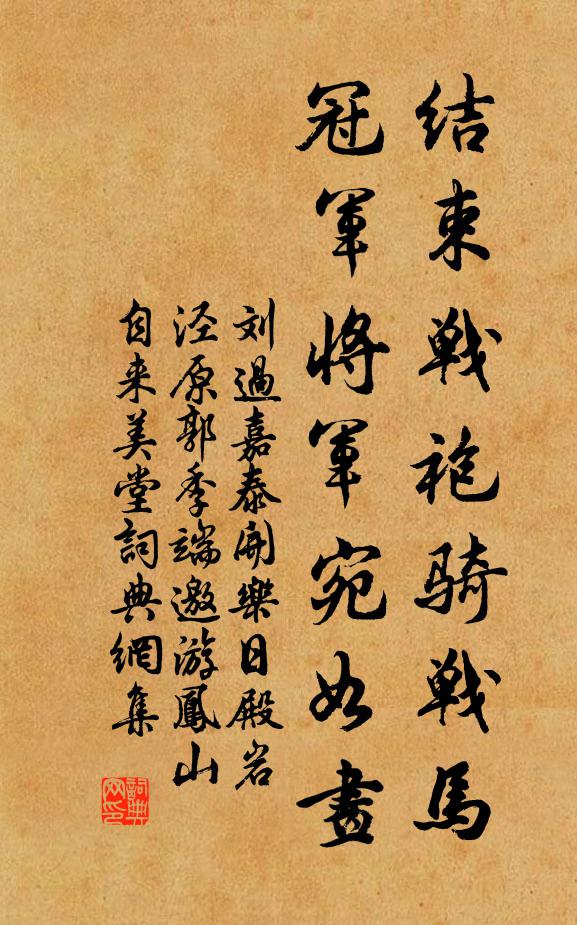 结束战袍骑战馬
冠軍將軍宛如畫
刘過嘉泰開樂日殿岩
泾原郭季端邀游鳳山
自来美堂詞典網集
詞典網印